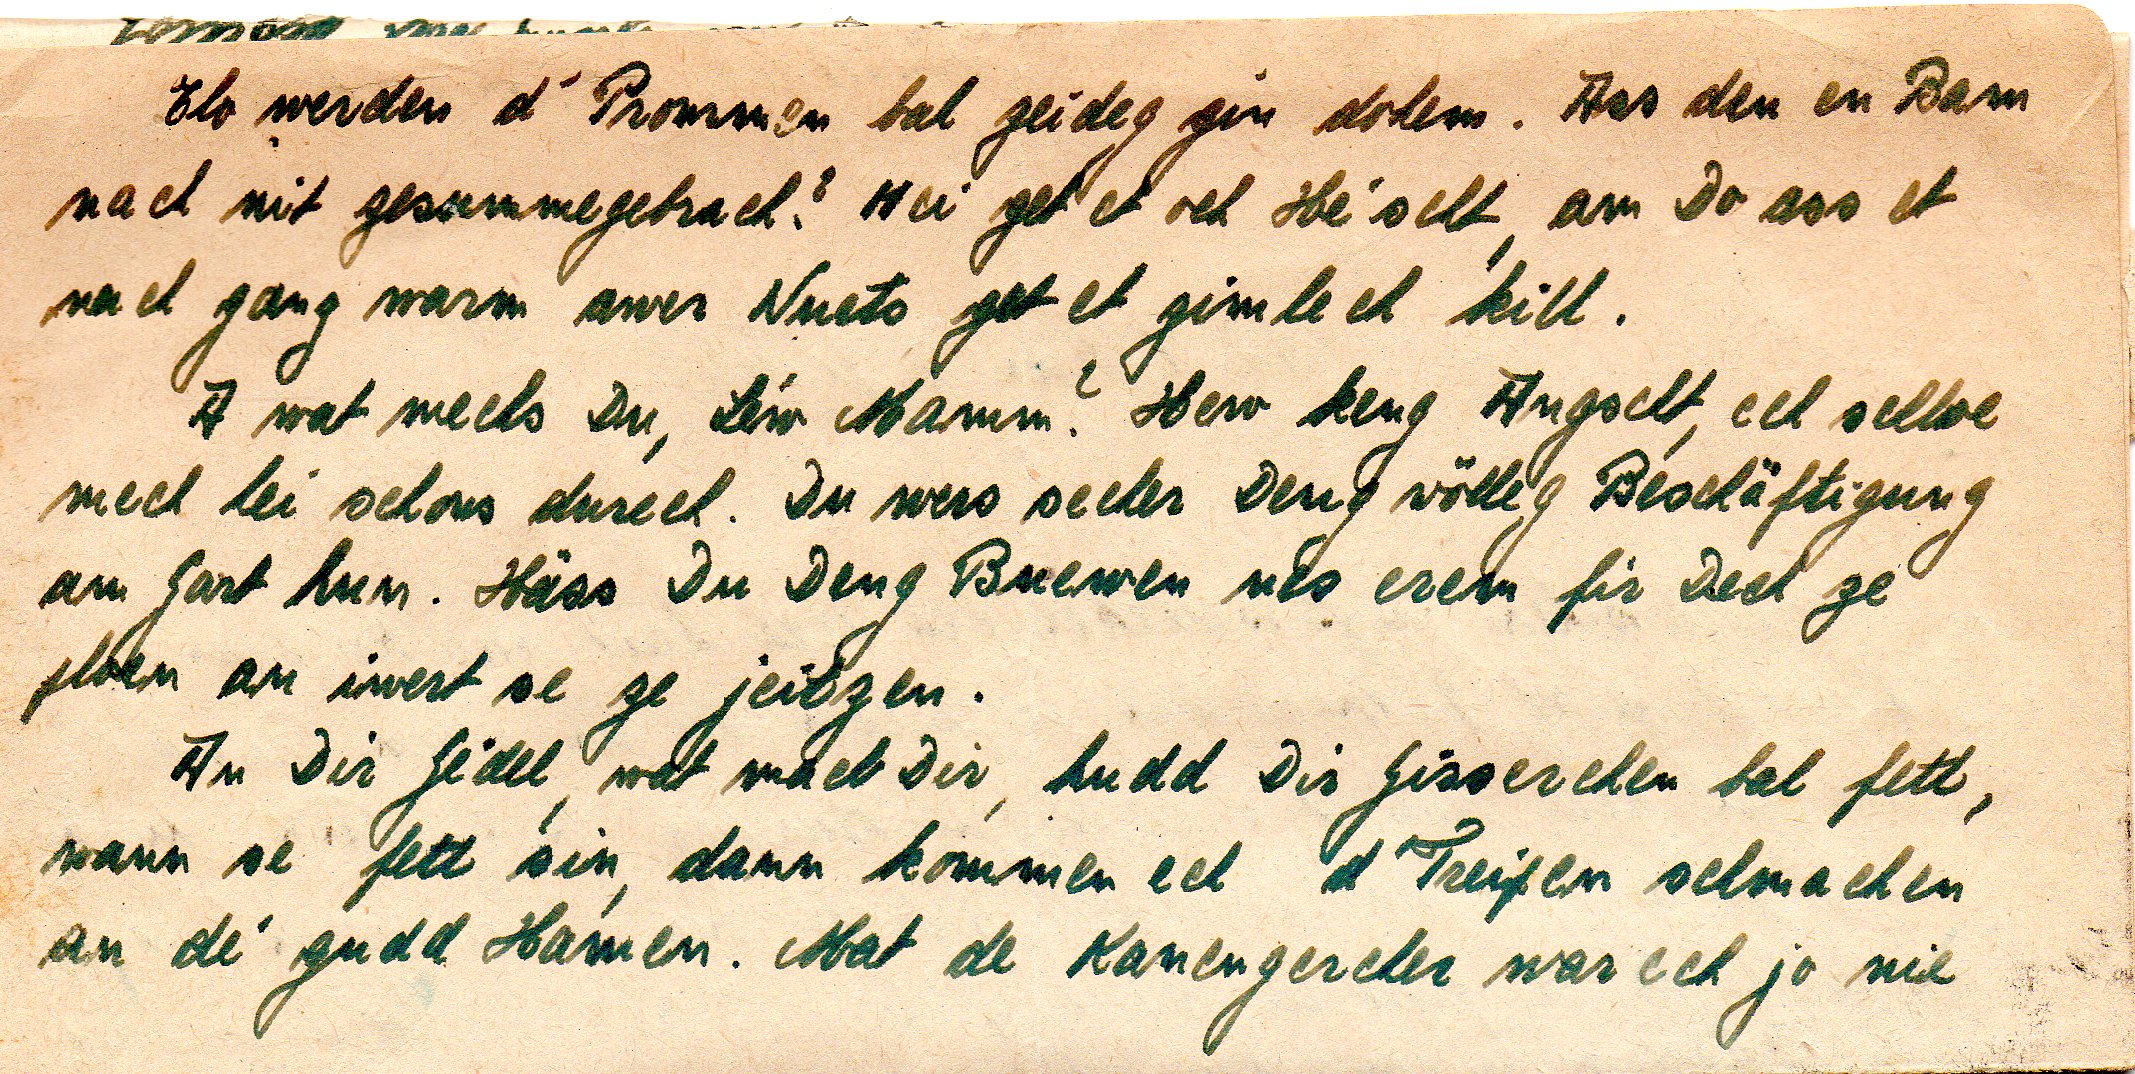 Elo werden d' Prommen bal zeideg gin dohem. Ass den en Bam
nach nit zesummegebrach? Hei get et och Héscht, am Do ass et
nach ganz warm awer Nuets get et zimlech kill.
A wat mechs Du, Léw Mamm? Hew keng Angscht, ech schloe
mech hei schons durech. Du wers secher Deng völleg Beschäftigung
am Gart hun. Häss Du Deng Buewen nës erem fir Dech ze
ploen an iwert se ze jeitzen.
An Dir Gidel, wat mach Dir, hudd Dir Gisserchen bal fett,
wann se fett sin, dann kommen ech d'Treipen schmachen
an dé gudd Hamen. Mat de Kanengercher war ech jo nie